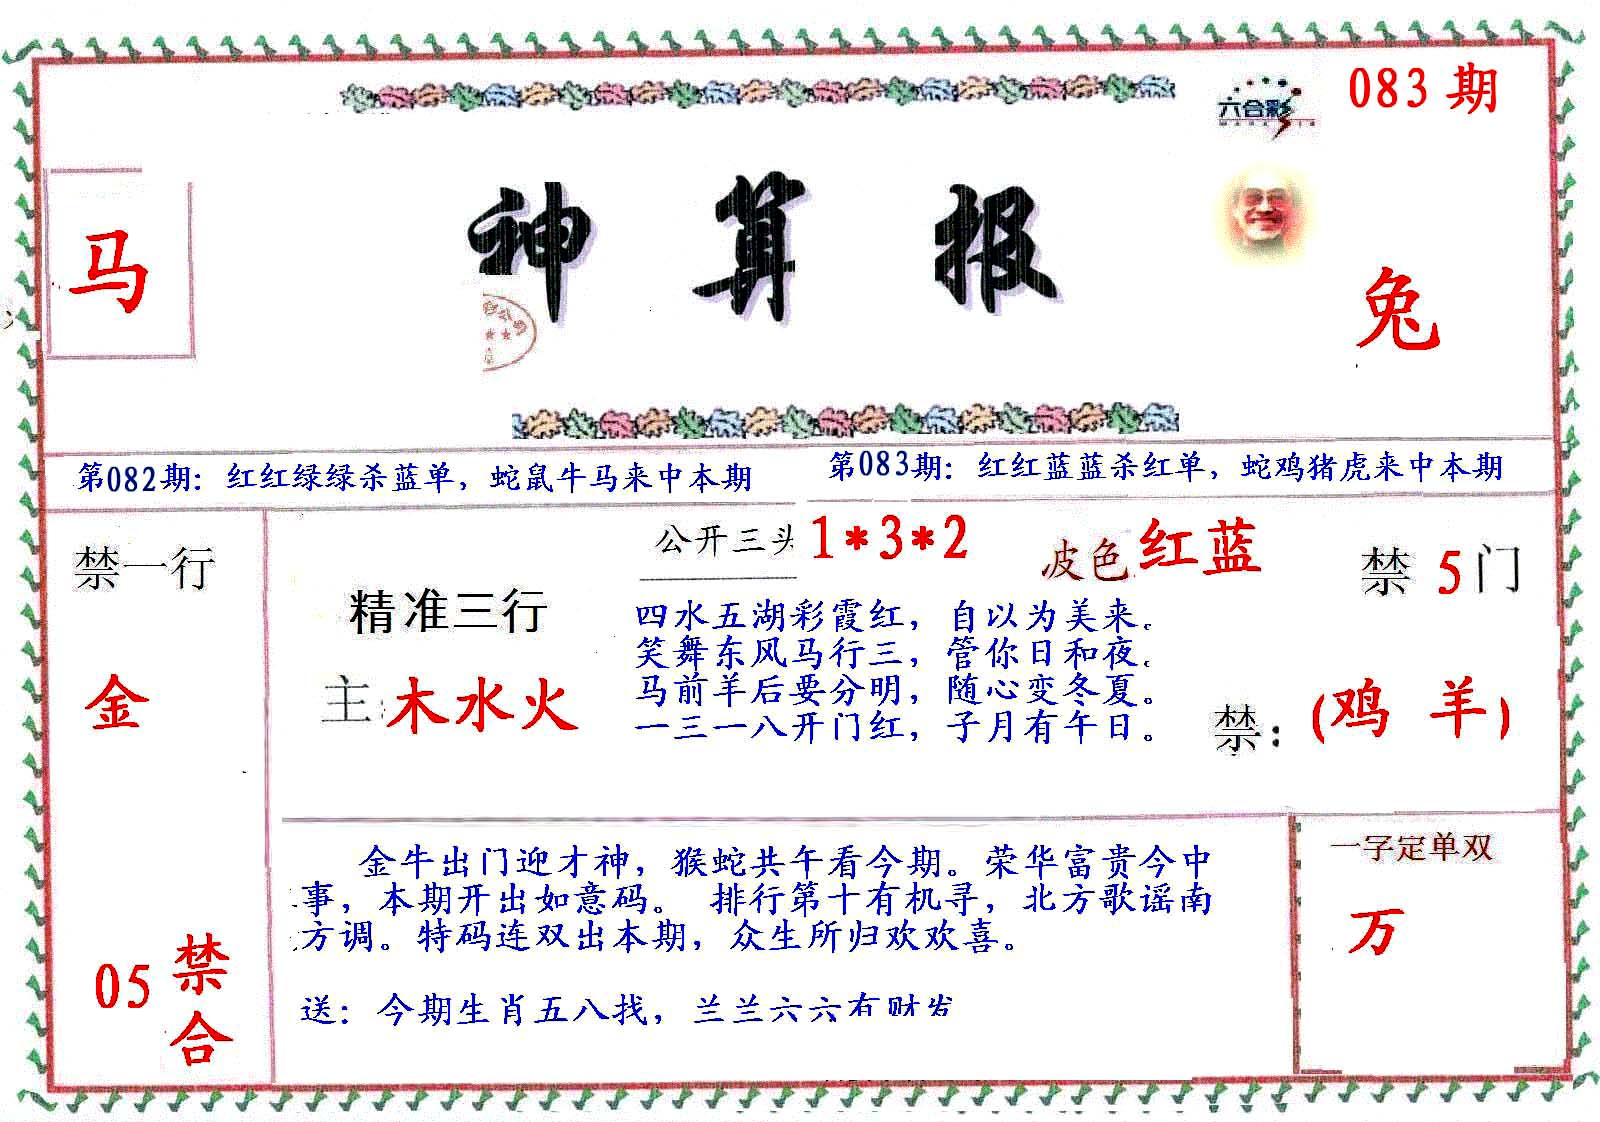 083 期
六合彩
神算报
马
兔
第082期：红红绿绿杀蓝单，蛇鼠牛马来中本期
第083期：红红蓝蓝杀红单，蛇鸡猪虎来中本期
禁一行
金
05 禁合
精准三行
主:木水火
公开三头 1*3*2
皮色 红蓝
禁 5 门
四水五湖彩霞红，自以为美来。
笑舞东风马行三，管你日和夜。
马前羊后要分明，随心变冬夏。
一三一八开门红，子月有午日。
禁：(鸡 羊)
金牛出门迎才神，猴蛇共午看今期。荣华富贵今中
事，本期开出如意码。 排行第十有机寻，北方歌谣南
方调。特码连双出本期，众生所归欢欢喜。
送：今期生肖五八找，兰兰六六有财发
一字定单双
万